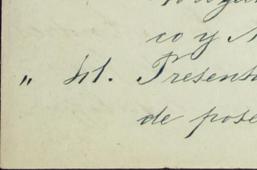 co y
„ 41. Present
de pose